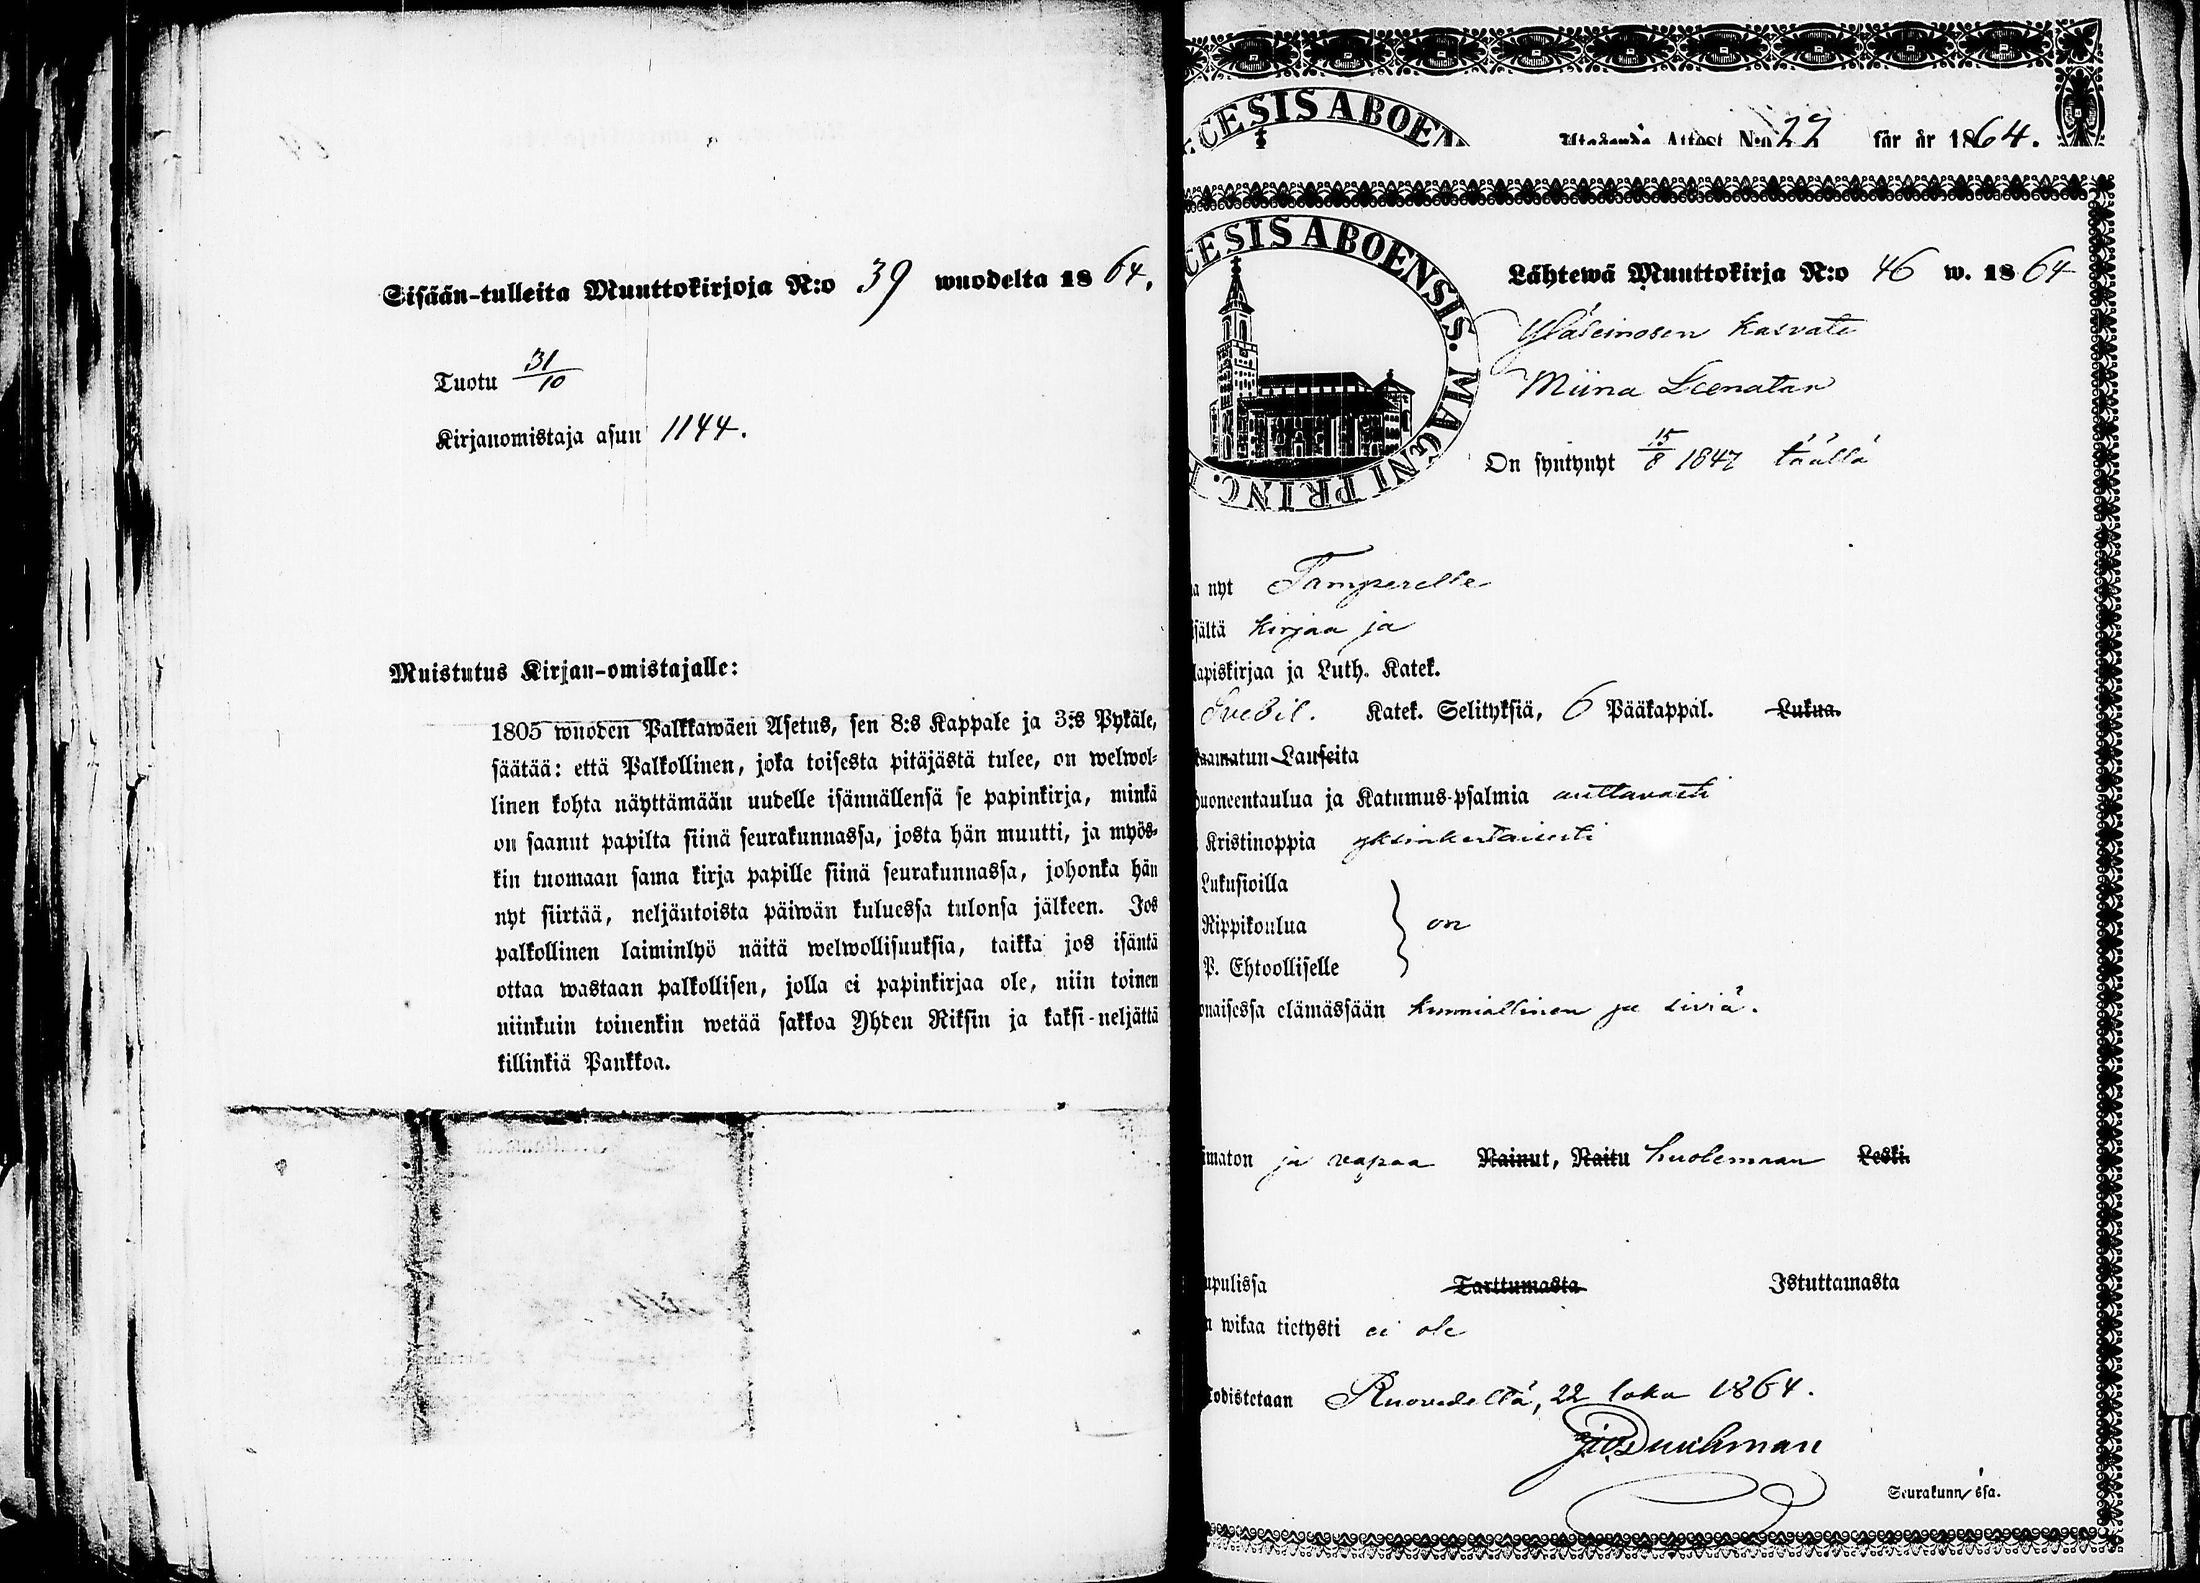 Sisään-tulleita Muuttokirjoja N:o 39 wuodelta 1864.
Tuotu 31/10
Kirjanomistaja asun 1144.
Muistutus Kirjan-omistajalle:
1805 wuoden Palkkawäen Asetus, sen 8:s Kappale ja 3:s Pykäle,
säätää: että Palkollinen, joka toisesta pitäjästä tulee, on welwol-
linen kohta näyttämään uudelle isännällensä se papinkirja, minkä
on saanut papilta siinä seurakunnassa, josta hän muutti, ja myös-
kin tuomaan sama kirja papille siinä seurakunnassa, johonka hän
nyt siirtää, neljäntoista päiwän kuluessa tulonsa jälkeen. Jos
palkollinen laiminlyö näitä welwollisuuksia, taikka jos isäntä
ottaa wastaan palkollisen, jolla ei papinkirjaa ole, niin toinen
niinkuin toinenkin wetää sakkoa Yhden Riksin ja kaksi-neljättä
killinkiä Pankkoa.
CESIS ABOEN
Utgående Attest N:o 22 för år 1864.
CESIS ABOENSIS. MAGNI PRINC.
Lähtewä Muuttokirja N:o 46 w. 1864
kasvate
Miina Leenatan
On syntynyt 15/8 1847 täällä
a nyt Tamperelle
sältä kirjaa ja
lapiskirjaa ja Luth. Katek.
Svebil. Katek. Selityksiä, 6 Pääkappal. Lukua.
aamatun Lauseita
huoneentaulua ja Katumus-psalmia auttavasti
Kristinoppia yksinkertaisesti
Lukusioilla
Rippikoulua } on
P. Ehtoolliselle
onaisessa elämässään kunniallinen ja siviä.
imaton ja vapaa Nainut, Naitu huolemaan Leski.
upulissa Tarttumasta Istuttamasta
n wikaa tietysti ei ole
todistetaan Ruovedeltä, 22 loka 1864.
Seurakunnassa.